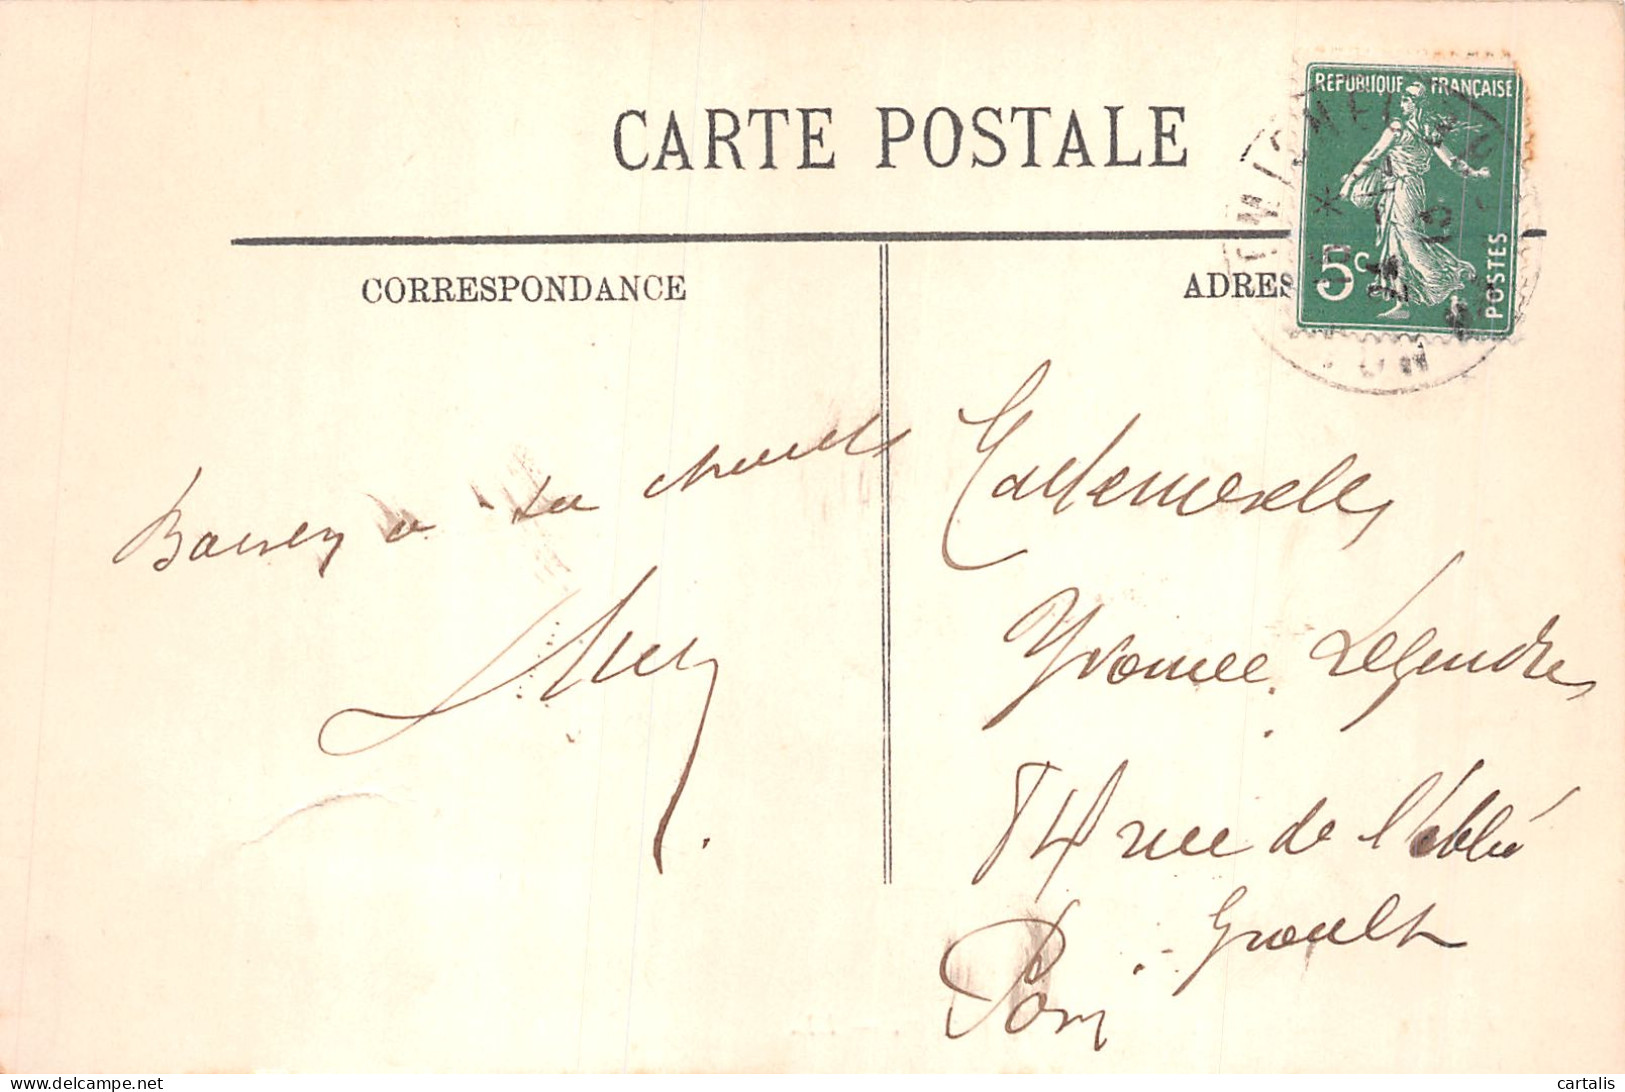 CARTE POSTALE
CORRESPONDANCE
ADRES
REPUBLIQUE FRANÇAISE
5c
POSTES
Baisers a ta
Mademoiselle
Yvonne Legendre
54 rue de l'abbé
Groult
Paris
delcampe.net
cartalis